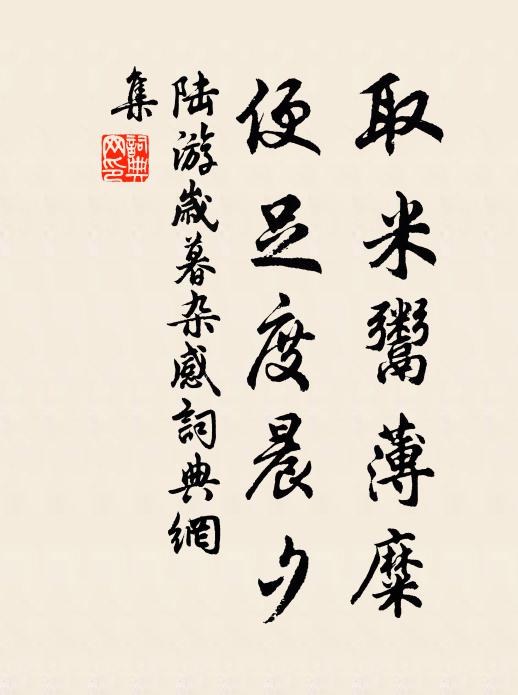 取米鬻薄糜
便足度晨夕
陆游歲暮杂感詞典網
集
詞典網印